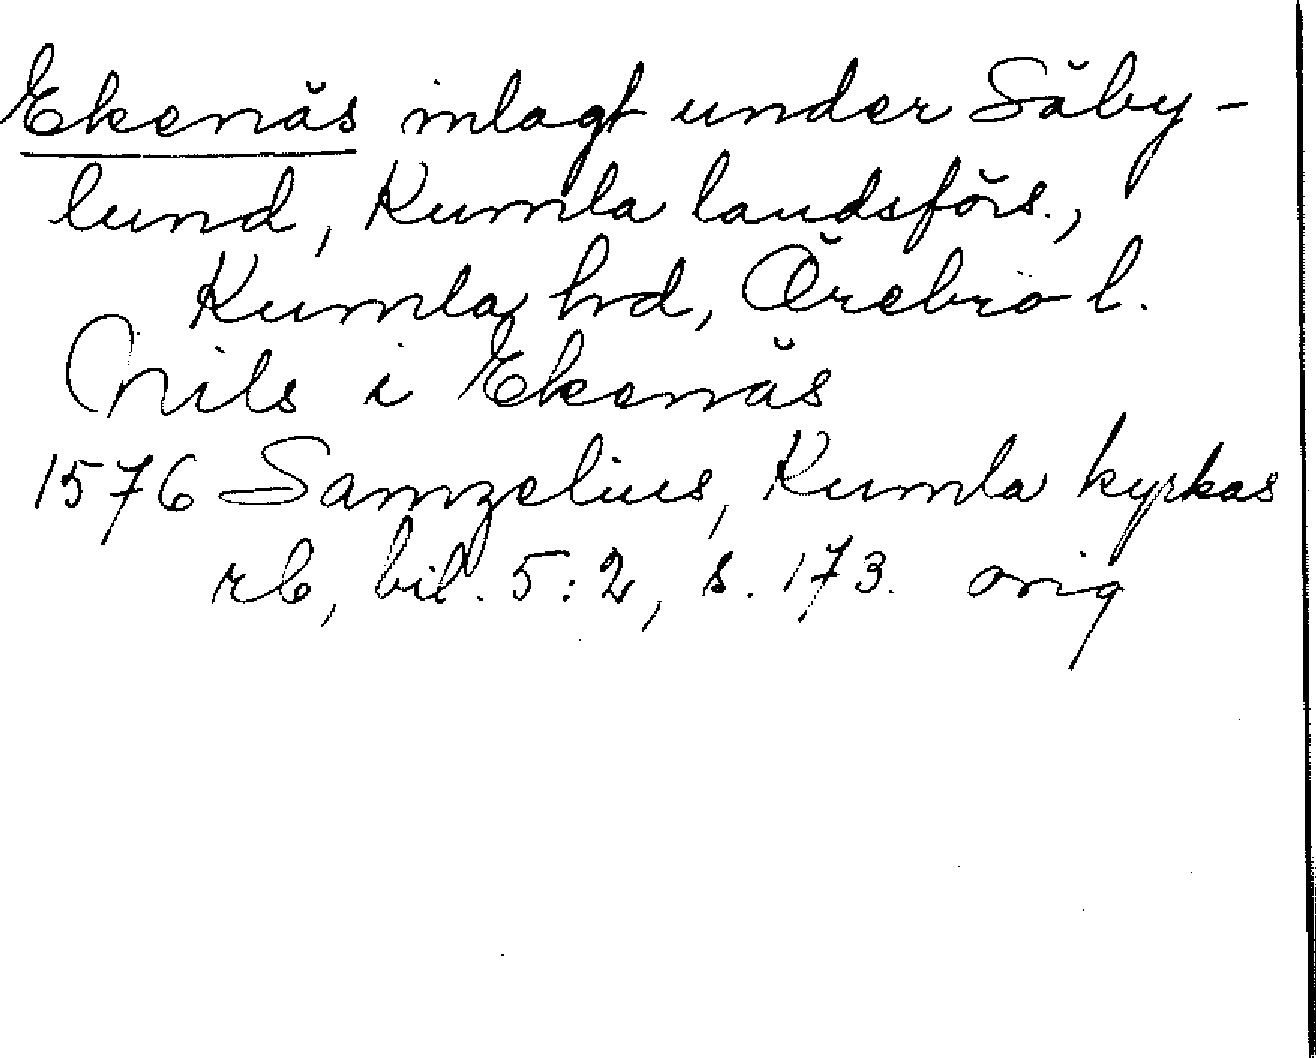 Ekenäs inlagt under Säby-
lund, Kumla landsförs.,
Kumla hd, Örebro l.
Nils i Ekenäs
1576 Samzelius, Kumla kyrkas
rb, bil. 5:2, s. 173. orig